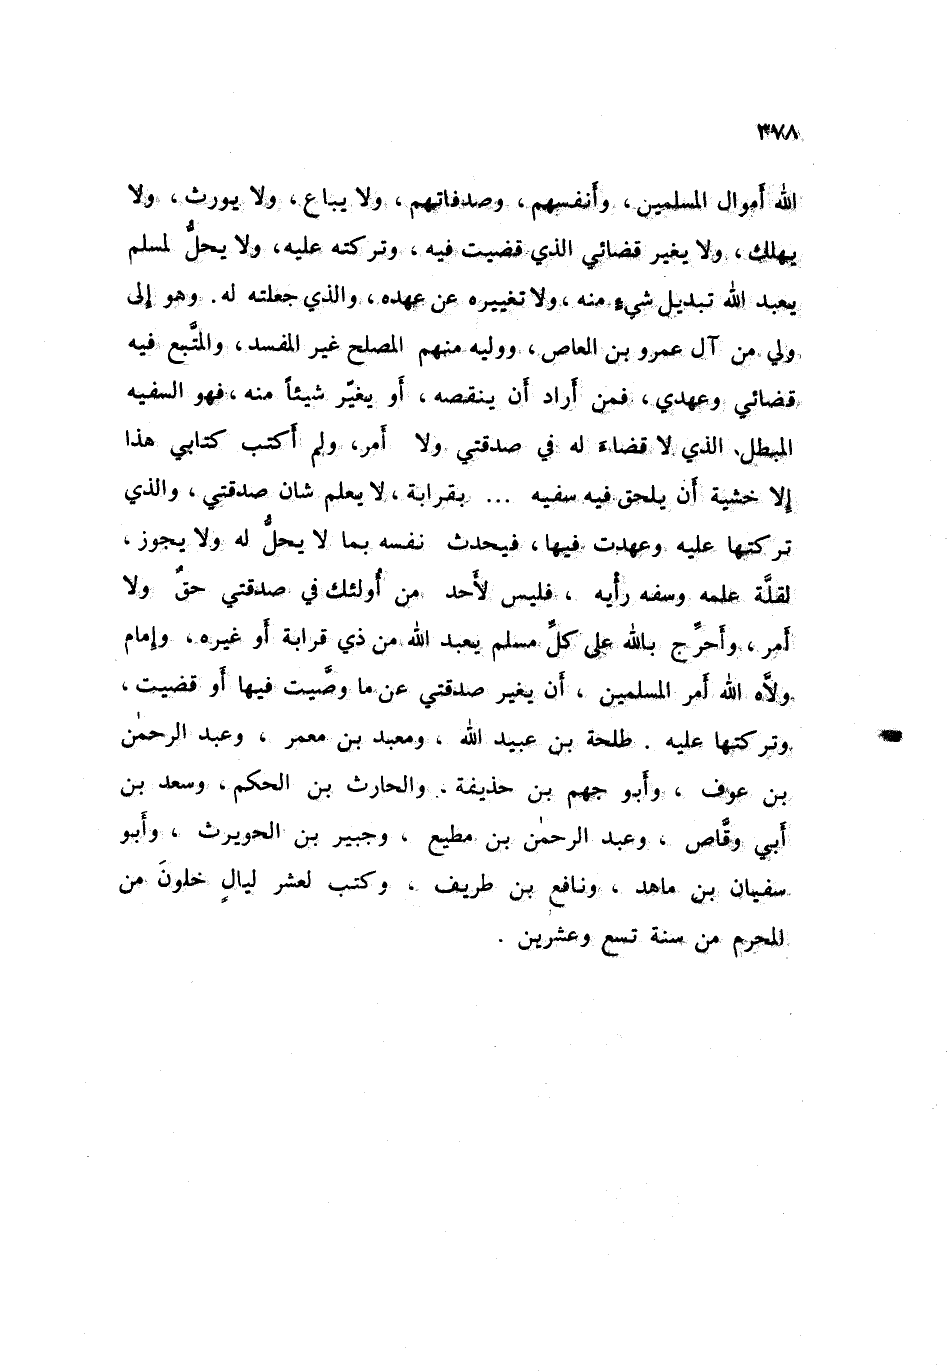 ٣٧٨
الله أموال المسلمين ، وأنفسهم ، وصدقاتهم ، ولا يباع ، ولا يورث ، ولا
يهلك ، ولا يغير قضائي الذي قضيت فيه ، وتركته عليه، ولا يحلُّ لمسلم
يعبد الله تبديل شيءٍ منه ، ولا تغييره عن عهده ، والذي جعلته له . وهو إلى
ولي من آل عمرو بن العاص ، ووليه منهم المصلح غير المفسد ، والمتَّبع فيه
قضائي وعهدي ، فمن أراد أن ينقصه ، أو يغيّر شيئاً منه ، فهو السفيه
المبطل. الذي لا قضاءَ له في صدقتي ولا أمر، ولم أكتب كتابي هذا
إلا خشية أن يلحق فيه سفيه ... بقرابة ، لا يعلم شان صدقتي ، والذي
تركتها عليه وعهدت فيها ، فيحدث نفسه بما لا يحلُّ له ولا يجوز ،
لقلَّة علمه وسفه رأيه ، فليس لأحد من أولئك في صدقتي حقٌ ولا
أمر ، وأحرِّج بالله على كلِّ مسلم يعبد الله من ذي قرابة أو غيره ، وإمام
ولاَّه الله أمر المسلمين ، أن يغير صدقتي عن ما وصَّيت فيها أو قضيت ،
وتركتها عليه . طلحة بن عبيد الله ، ومعبد بن معمر ، وعبد الرحمٰن
بن عوف ، وأبو جهم بن حذيفة . والحارث بن الحكم ، وسعد بن
أبي وقَّاص ، وعبد الرحمٰن بن مطيع ، وجبير بن الحويرث ، وأبو
سفيان بن ماهد ، ونافع بن طريف ، وكتب لعشر ليالٍ خلونَ من
المحرم من سنة تسع وعشرين .